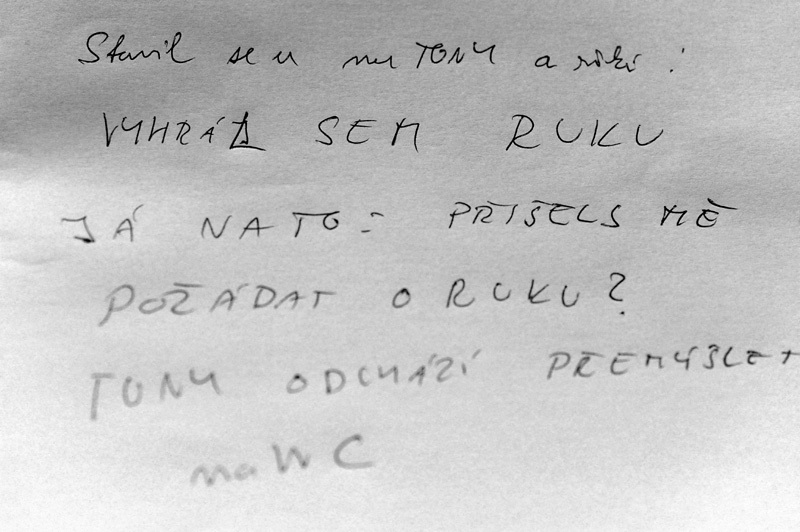 Stavil se u mě TONY a říká:
VYHRÁL SEM RUKU
JÁ NATO: PŘIŠELS MĚ
POŽÁDAT O RUKU?
TONY ODCHÁZÍ PŘEMÝŠLET
na WC